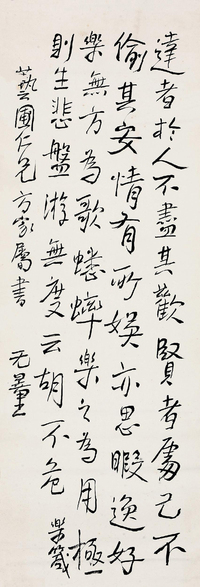 達者於人不盡其歡賢者處己不
偷其安情有所娛亦思暇逸好
樂無方為歌蟋蟀樂之為用極
則生悲盤游無度云胡不危 樂箴
藝圃仁兄方家屬書 无量